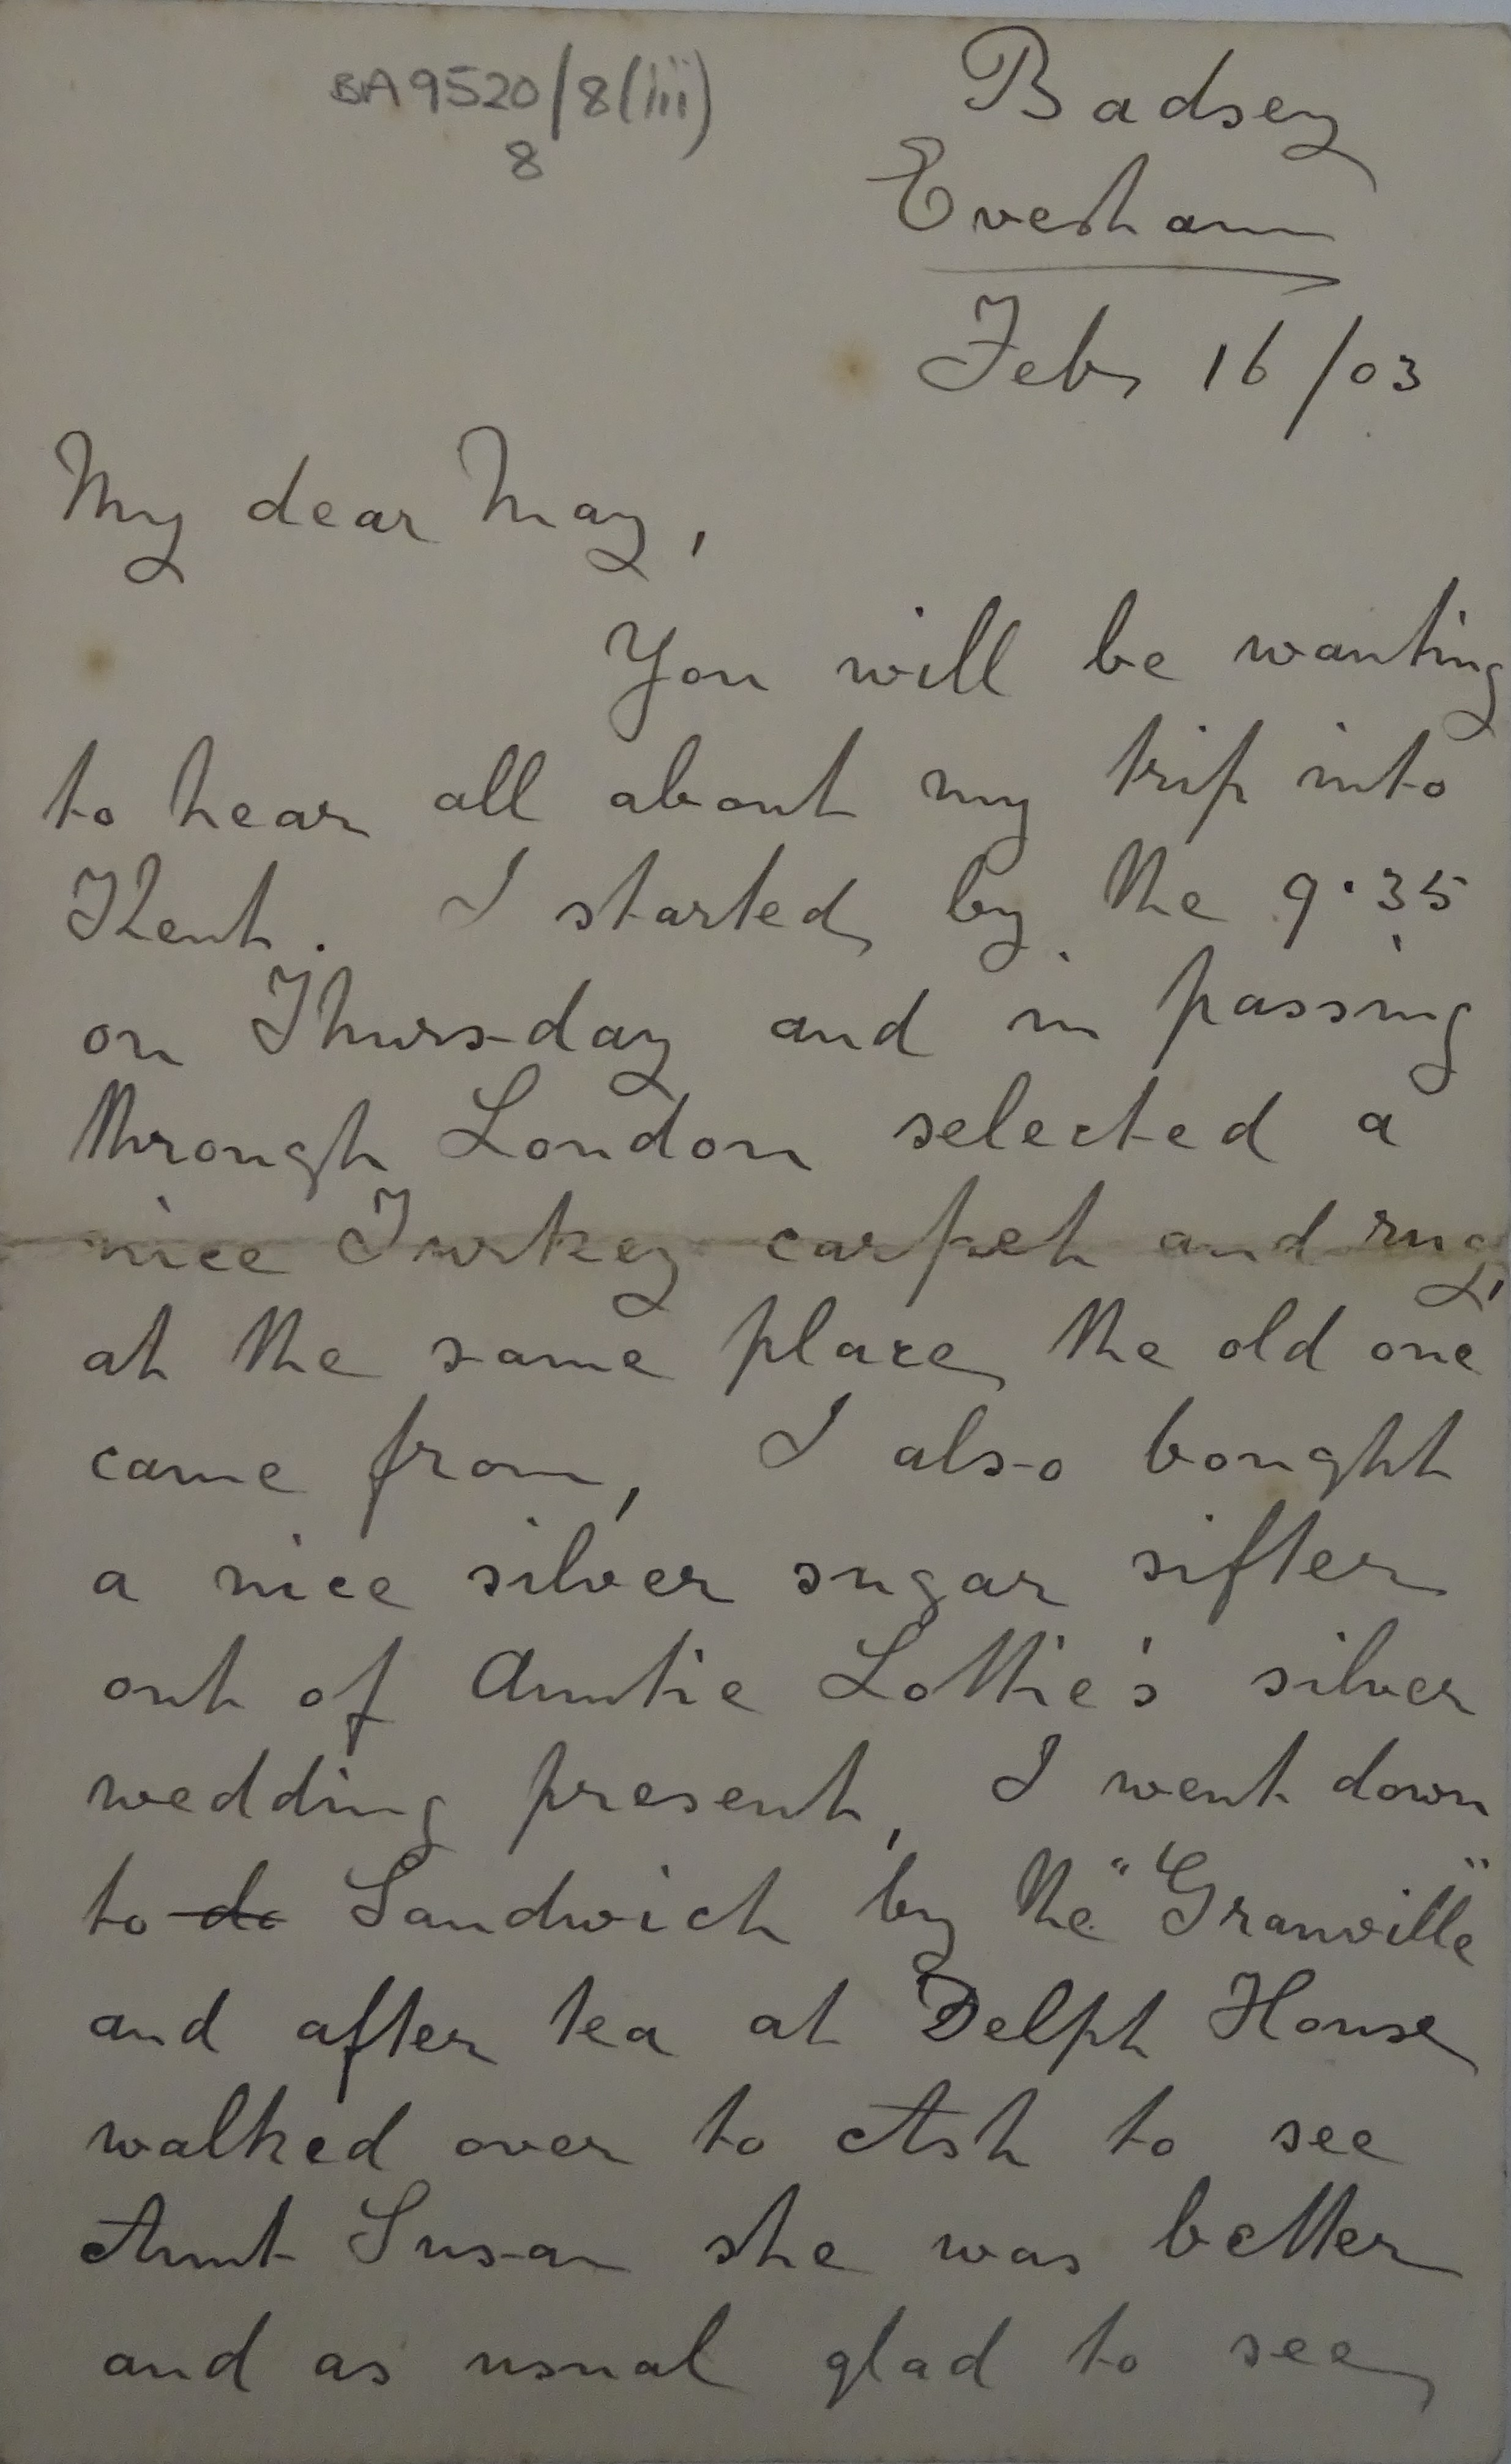 BA9520/8(iii)
8
Badsey
Evesham
Feb, 16/03
My dear May,
You will be wanting
to hear all about my trip into
Kent. I started by the 9.35
on Thursday and in passing
through London selected a
nice Turkey carpet and rug,
at the same place the old one
came from, I also bought
a nice silver sugar sifter
out of Auntie Lottie's silver
wedding present, I went down
to do Sandwich by the "Granville"
and after tea at Delph House
walked over to Ash to see
Aunt Susan she was better
and as usual glad to see